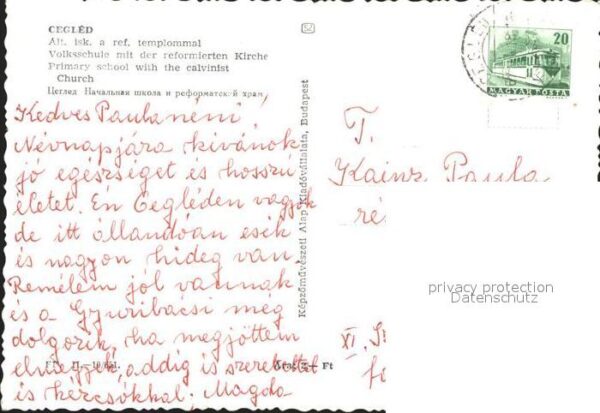 CEGLÉD
Ált. isk. a ref. templommal
Volksschule mit der reformierten Kirche
Primary school with the calvinist
Church
Цеглед Начальная школа и реформатский храм
Kedves Paula néni!
Névnapjára kivánok
jó egészséget és hosszú
életet. Én Cegléden vagyok
de itt állandóan esik
és nagyon hideg van.
Remélem jól vannak
és a Gyuribácsi még
dolgozik, ha megjöttem
elmegyek, addig is szeretettel
és kézcsókkal: Magda
Ft
Képzőművészeti Alap Kiadóvállalata, Budapest
20
MAGYAR POSTA
T.
Kainz Paula
ré
XI.
privacy protection
Datenschutz